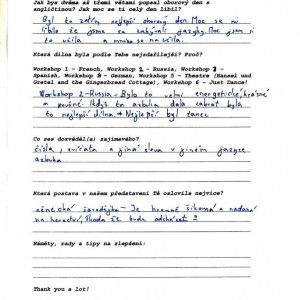 Jak bys dvěma až třemi větami popsal oborový den s
angličtinou? Jak moc se ti celý den líbil?
Byl to zatím nejlepší oborový den. Moc se mi
líbilo že jsme se zabývali jazyky. Moc jsem si
to užila a mnoho se naučila.
Která dílna byla podle Tebe nejzdařilejší? Proč?
Workshop 1 - French, Workshop 2 - Russia, Workshop 3 -
Spanish, Workshop 4 - German, Workshop 5 - Theatre (Hansel und
Gretel and the Gingerbread Cottage), Workshop 6 - Just Dance!
Workshop 2 - Russia - Bylo to velmi energetické, krásné
a poučné. I když to azbuka dala zabrat byla
to nejlepší dílna. Nejlepší byl tanec
Co ses dozvěděl(a) zajímavého?
čísla, zvířata a jiná slova v jiném jazyce
azbuka
Která postava v našem představení Tě oslovila nejvíce?
německá čarodějka - Je hrozně šikovná a nadaná
na herectví, škoda že bude odcházet
Náměty, rady a tipy na zlepšení:
Thank you a lot!